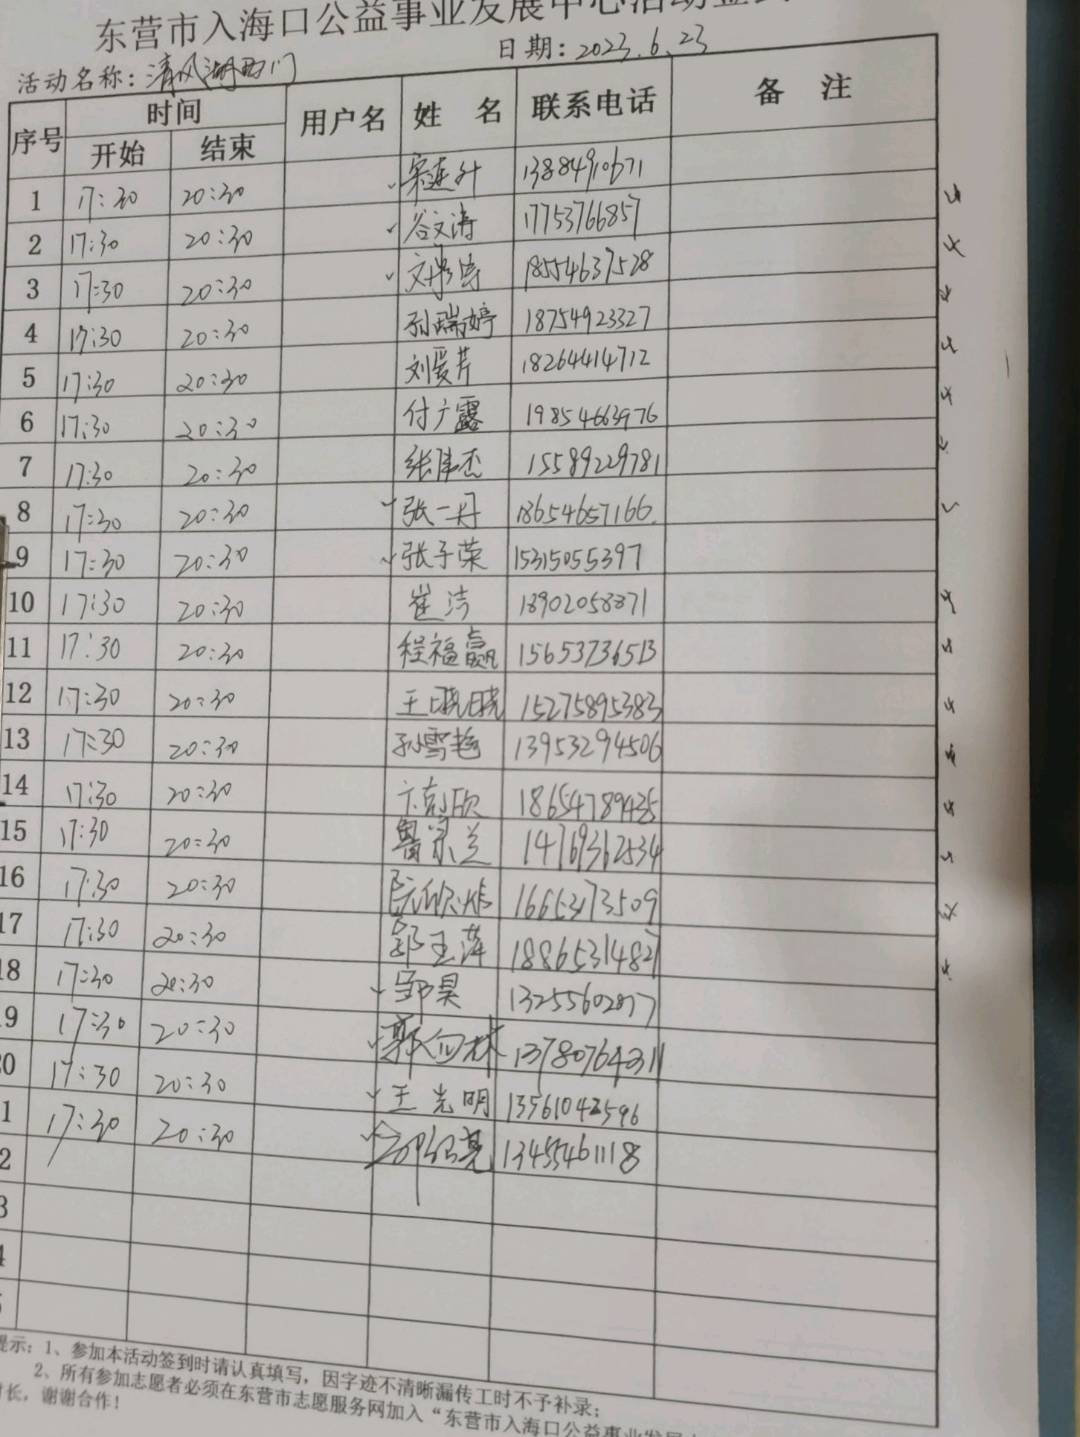 东营市入海口公益事业发展中心活动签到
活动名称：清风湖西门 日期：2023.6.23
序号 时间 用户名 姓 名 联系电话 备 注
开始 结束
1 17:30 20:30 宋连升 13884910671
2 17:30 20:30 谷文涛 17753766857
3 17:30 20:30 18554637528
4 17:30 20:30 孙瑞婷 18754923327
5 17:30 20:30 刘爱芹 18264414712
6 17:30 20:30 付广露 19854663976
7 17:30 20:30 张唯杰 15589229781
8 17:30 20:30 张一丹 18654657166
9 17:30 20:30 张子荣 15315055397
10 17:30 20:30 崔洁 18902058871
11 17:30 20:30 程福赢 15653736513
12 17:30 20:30 王晓晓 15275895383
13 17:30 20:30 孙雪艳 13953294506
14 17:30 20:30 18654789425
15 17:30 20:30 鲁景兰 14769362534
16 17:30 20:30 阮欣 16653173509
17 17:30 20:30 郭玉萍 18865314827
18 17:30 20:30 邹昊 13255602877
9 17:30 20:30 郭向林 13780764311
0 17:30 20:30 王光明 13561042596
1 17:30 20:30 13455461118
2
3
4
5
提示：1、参加本活动签到时请认真填写，因字迹不清晰漏传工时不予补录；
2、所有参加志愿者必须在东营市志愿服务网加入“东营市入海口公益事业发展
时长，谢谢合作！